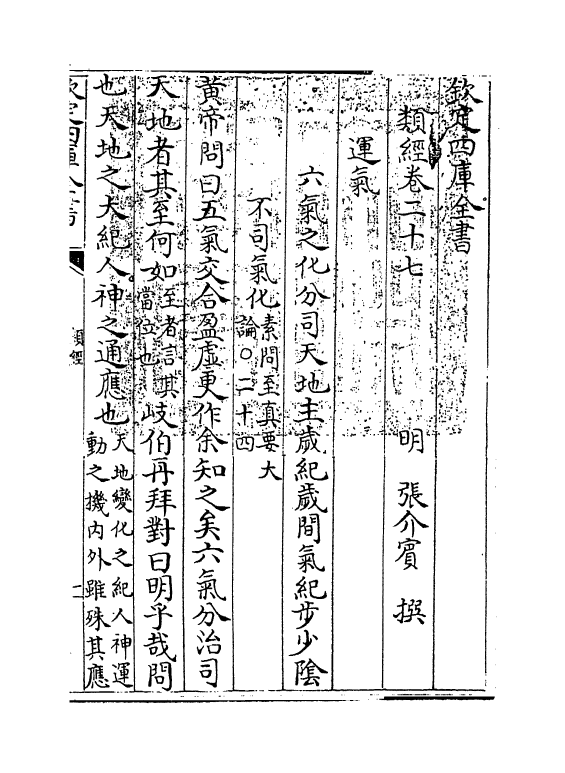 欽定四庫全書
類經卷二十七
明 張介賓 撰
運氣
六氣之化分司天地主歲紀歲間氣紀步少陰
不司氣化素問至真要大
論○二十四
黃帝問曰五氣交合盈虛更作余知之矣六氣分治司
天地者其至何如至者言其
當位也岐伯再拜對曰明乎哉問
也天地之大紀人神之通應也天地變化之紀人神運
動之機內外雖殊其應
欽定四庫全書
類經
一